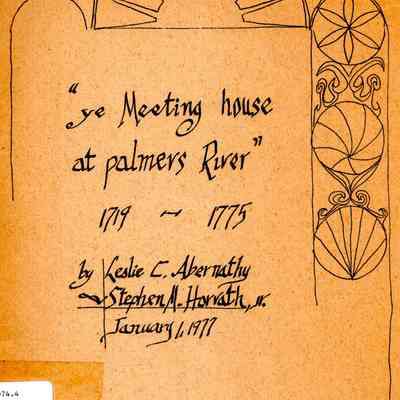 "ye Meeting house
at palmers River"
1719 ~ 1775
by Leslie C. Abernathy
Stephen M. Horvath, Jr.
January 1, 1977
974.4